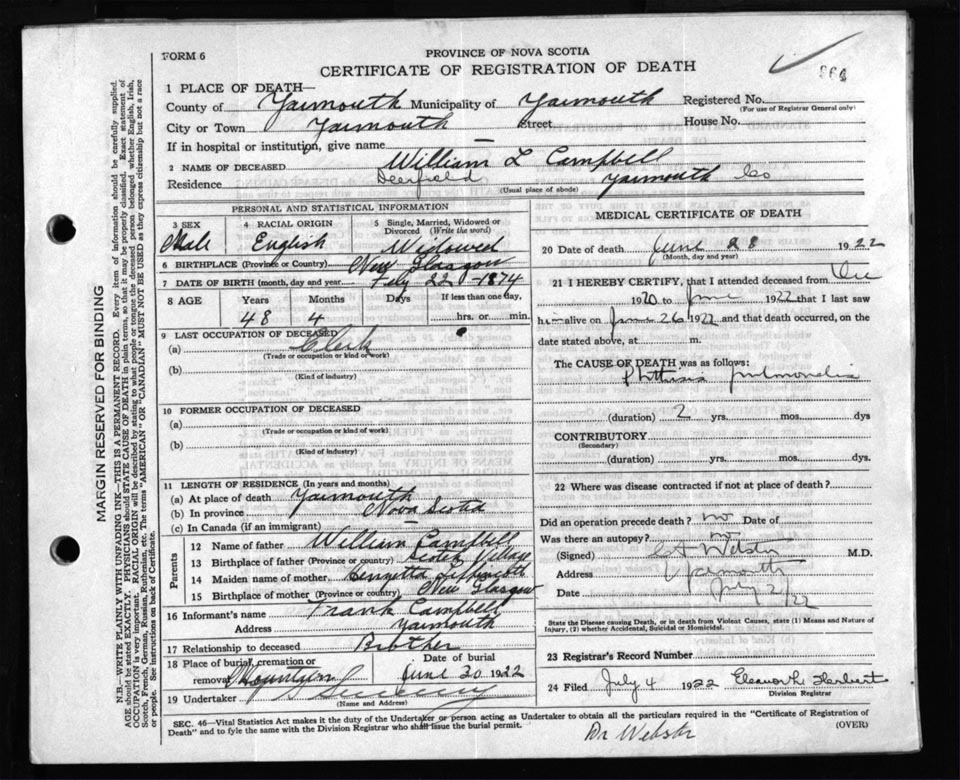 FORM 6
PROVINCE OF NOVA SCOTIA
CERTIFICATE OF REGISTRATION OF DEATH
864
1 PLACE OF DEATH—
County of Yarmouth Municipality of Yarmouth Registered No.
(For use of Registrar General only)
City or Town Yarmouth Street House No.
If in hospital or institution, give name —
2 NAME OF DECEASED William L Campbell
Residence Deerfield Yarmouth Co
(Usual place of abode)
PERSONAL AND STATISTICAL INFORMATION
3 SEX 4 RACIAL ORIGIN 5 Single, Married, Widowed or Divorced (Write the word)
Male English Widowed
6 BIRTHPLACE (Province or Country) New Glasgow
7 DATE OF BIRTH (month, day and year) Feby 22 - 1874
8 AGE Years Months Days If less than one day,
48 4 hrs. or min.
9 LAST OCCUPATION OF DECEASED
(a) Clerk
(Trade or occupation or kind of work)
(b)
(Kind of industry)
10 FORMER OCCUPATION OF DECEASED
(a)
(Trade or occupation or kind of work)
(b)
(Kind of industry)
11 LENGTH OF RESIDENCE (In years and months)
(a) At place of death Yarmouth
(b) In province Nova Scotia
(c) In Canada (if an immigrant) —
Parents
12 Name of father William Campbell
13 Birthplace of father (Province or country) Scotch Village
14 Maiden name of mother
15 Birthplace of mother (Province or country) New Glasgow
16 Informant's name Frank Campbell
Address Yarmouth
17 Relationship to deceased Brother
18 Place of burial, cremation or removal Mountain Date of burial June 30 1922
19 Undertaker Sweeny
(Name and Address)
MEDICAL CERTIFICATE OF DEATH
20 Date of death June 28 1922
(Month, day and year)
21 I HEREBY CERTIFY, that I attended deceased from Dec
1920 to June 1922 that I last saw
him alive on June 26 1922 and that death occurred, on
date stated above, at m.
The CAUSE OF DEATH was as follows:
Phthisis pulmonalis
(duration) 2 yrs. mos. dys
CONTRIBUTORY
(Secondary)
(duration) yrs. mos. dys
22 Where was disease contracted if not at place of death?
Did an operation precede death? no Date of
Was there an autopsy? no
(Signed) Webster M.D.
Address Yarmouth
Date July 2/22
State the Disease causing Death, or in death from Violent Causes, state (1) Means and Nature of
Injury, (2) whether Accidental, Suicidal or Homicidal.
23 Registrar's Record Number
24 Filed July 4 1922 Eleanor Herbert
Division Registrar
SEC. 46—Vital Statistics Act makes it the duty of the Undertaker or person acting as Undertaker to obtain all the particulars required in the "Certificate of Registration of
Death" and to fyle the same with the Division Registrar who shall issue the burial permit. (OVER)
Dr Webster
MARGIN RESERVED FOR BINDING
N.B.—WRITE PLAINLY WITH UNFADING INK—THIS IS A PERMANENT RECORD. Every item of information should be carefully supplied.
AGE should be stated EXACTLY. PHYSICIANS should STATE CAUSE OF DEATH in plain terms, so that it may be properly classified. Exact statement of
OCCUPATION is very important. RACIAL ORIGIN will be described by stating to what people or tongue the deceased person belonged whether English, Irish,
Scotch, French, German, Russian, Ruthenian, etc. The terms "AMERICAN" OR "CANADIAN" MUST NOT BE USED as they express citizenship but not a race
or people. See instructions on back of Certificate.